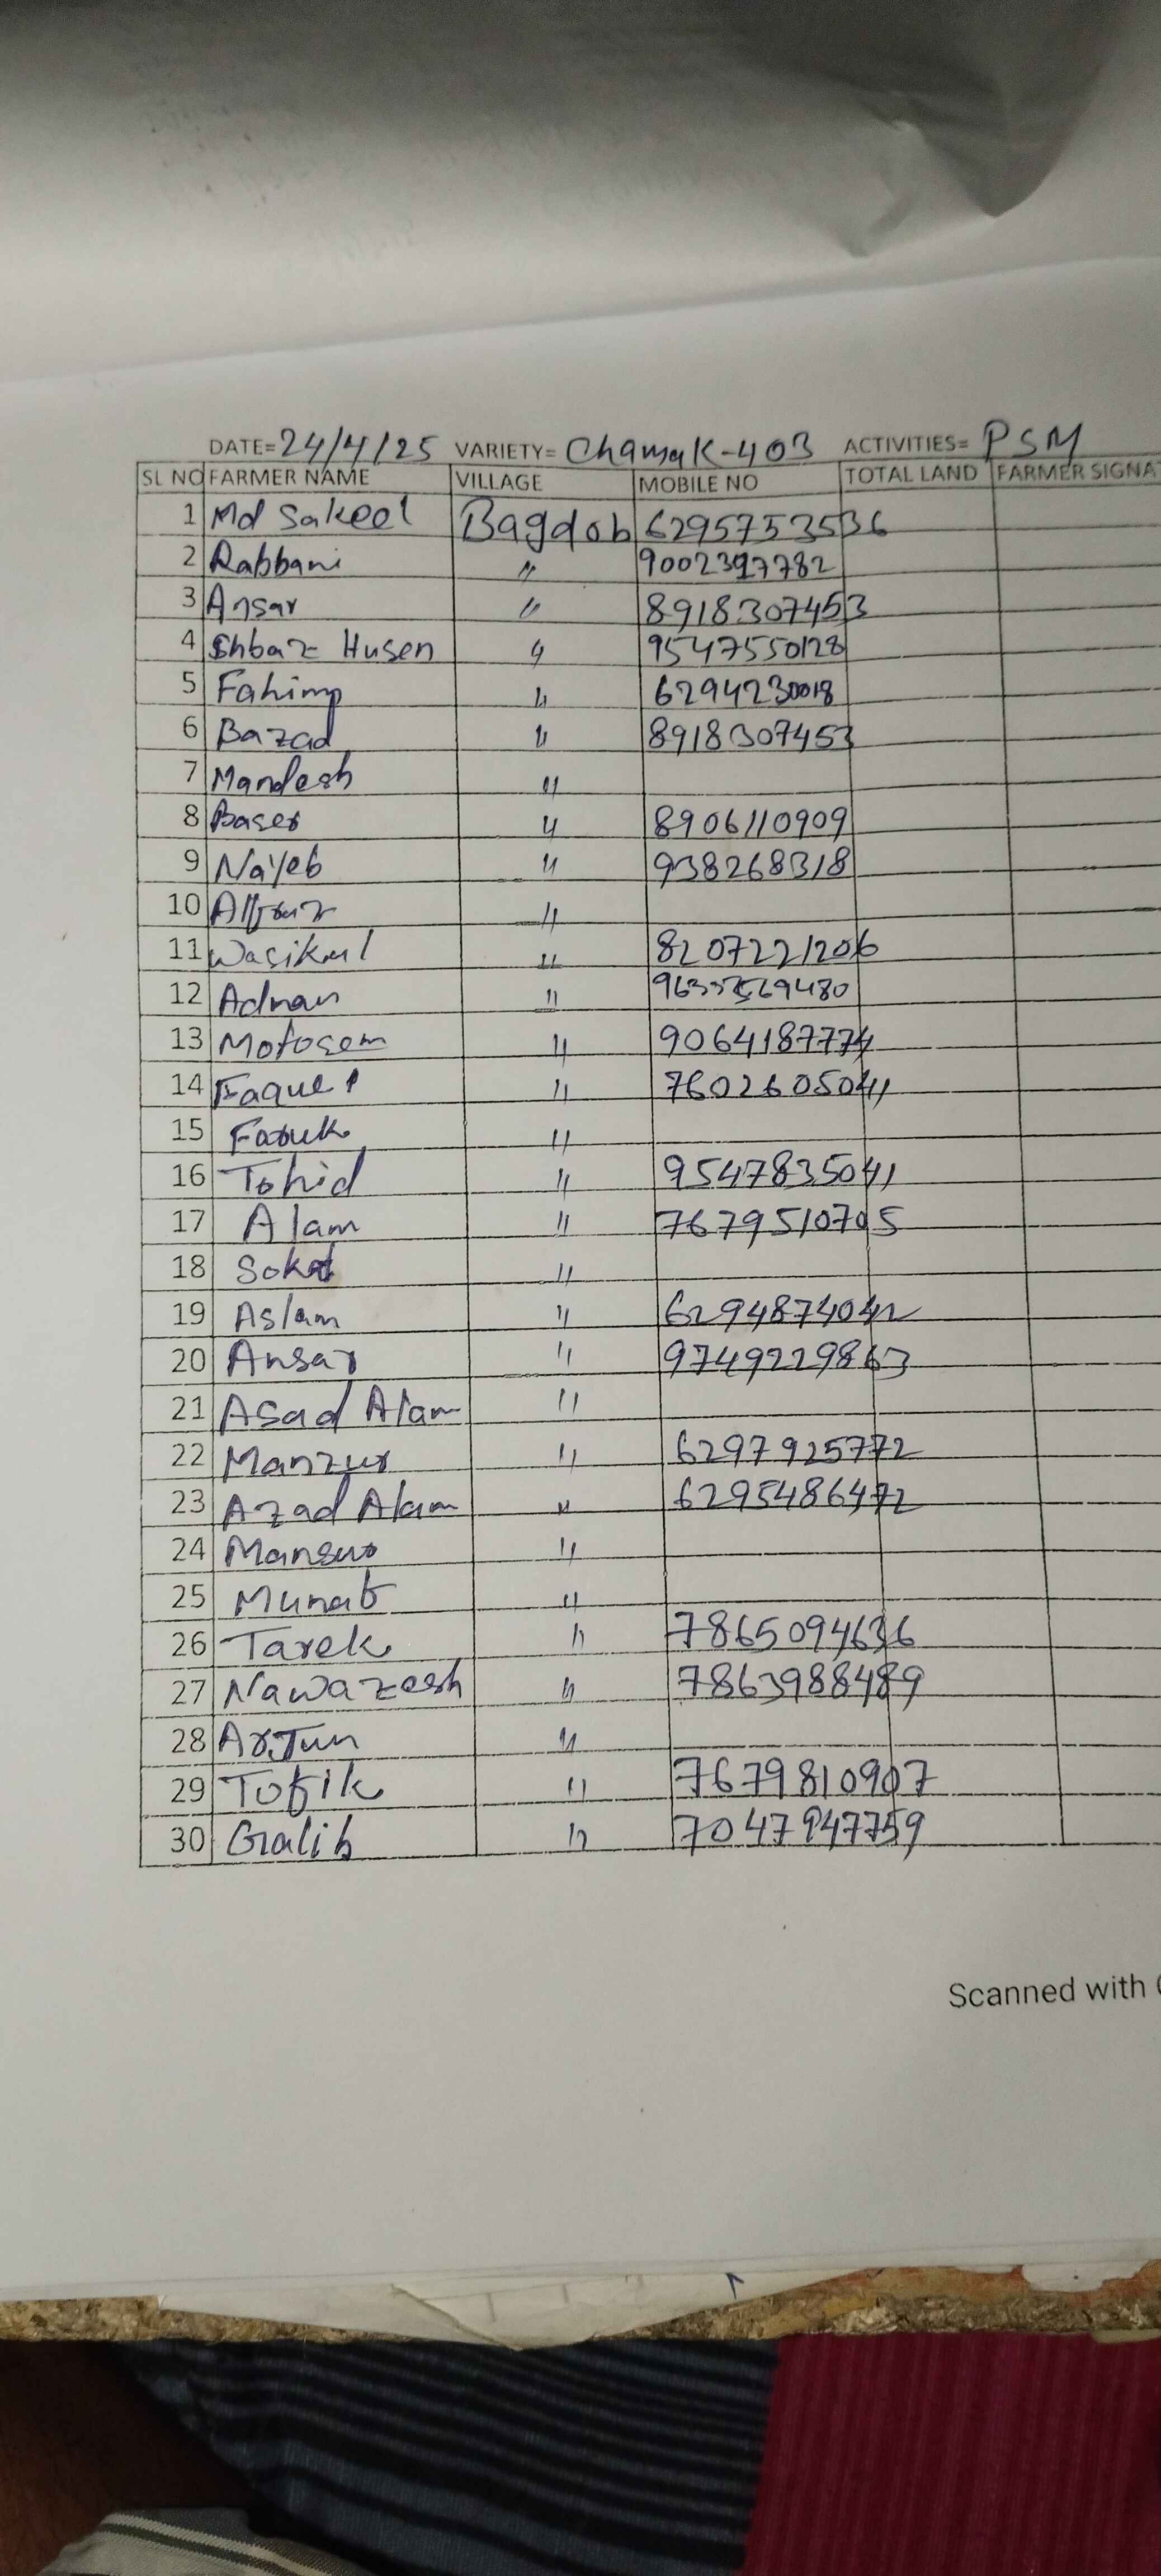 DATE= 24/4/25 VARIETY= Chamak-403 ACTIVITIES= PSM
SL NO FARMER NAME VILLAGE MOBILE NO TOTAL LAND FARMER SIGNA
1 Md Sakeel Bagdob 6295753536
2 Rabbani " 9002397782
3 Ansar " 8918307453
4 Shbaz Husen " 9547550128
5 Fahim " 6294230018
6 Bazad " 8918307453
7 Mandesh "
8 Baser " 8906110909
9 Nayeb " 938268318
10 "
11 Wasikul " 8207221206
12 Adnan "
13 Motosem " 9064187774
14 Faquel " 7602605041
15 Faruk "
16 Tohid " 9547835041
17 Alam " 7679510705
18 "
19 Aslam " 6294874042
20 Ansar " 9749229863
21 Asad Alam "
22 Manzur " 6297925772
23 Azad Alam " 6295486472
24 Mansur "
25 Munab "
26 Tarek " 7865094636
27 Nawazesh " 7863988489
28 ArJun "
29 Tofik " 7679810907
30 Galib " 7047947759
Scanned with